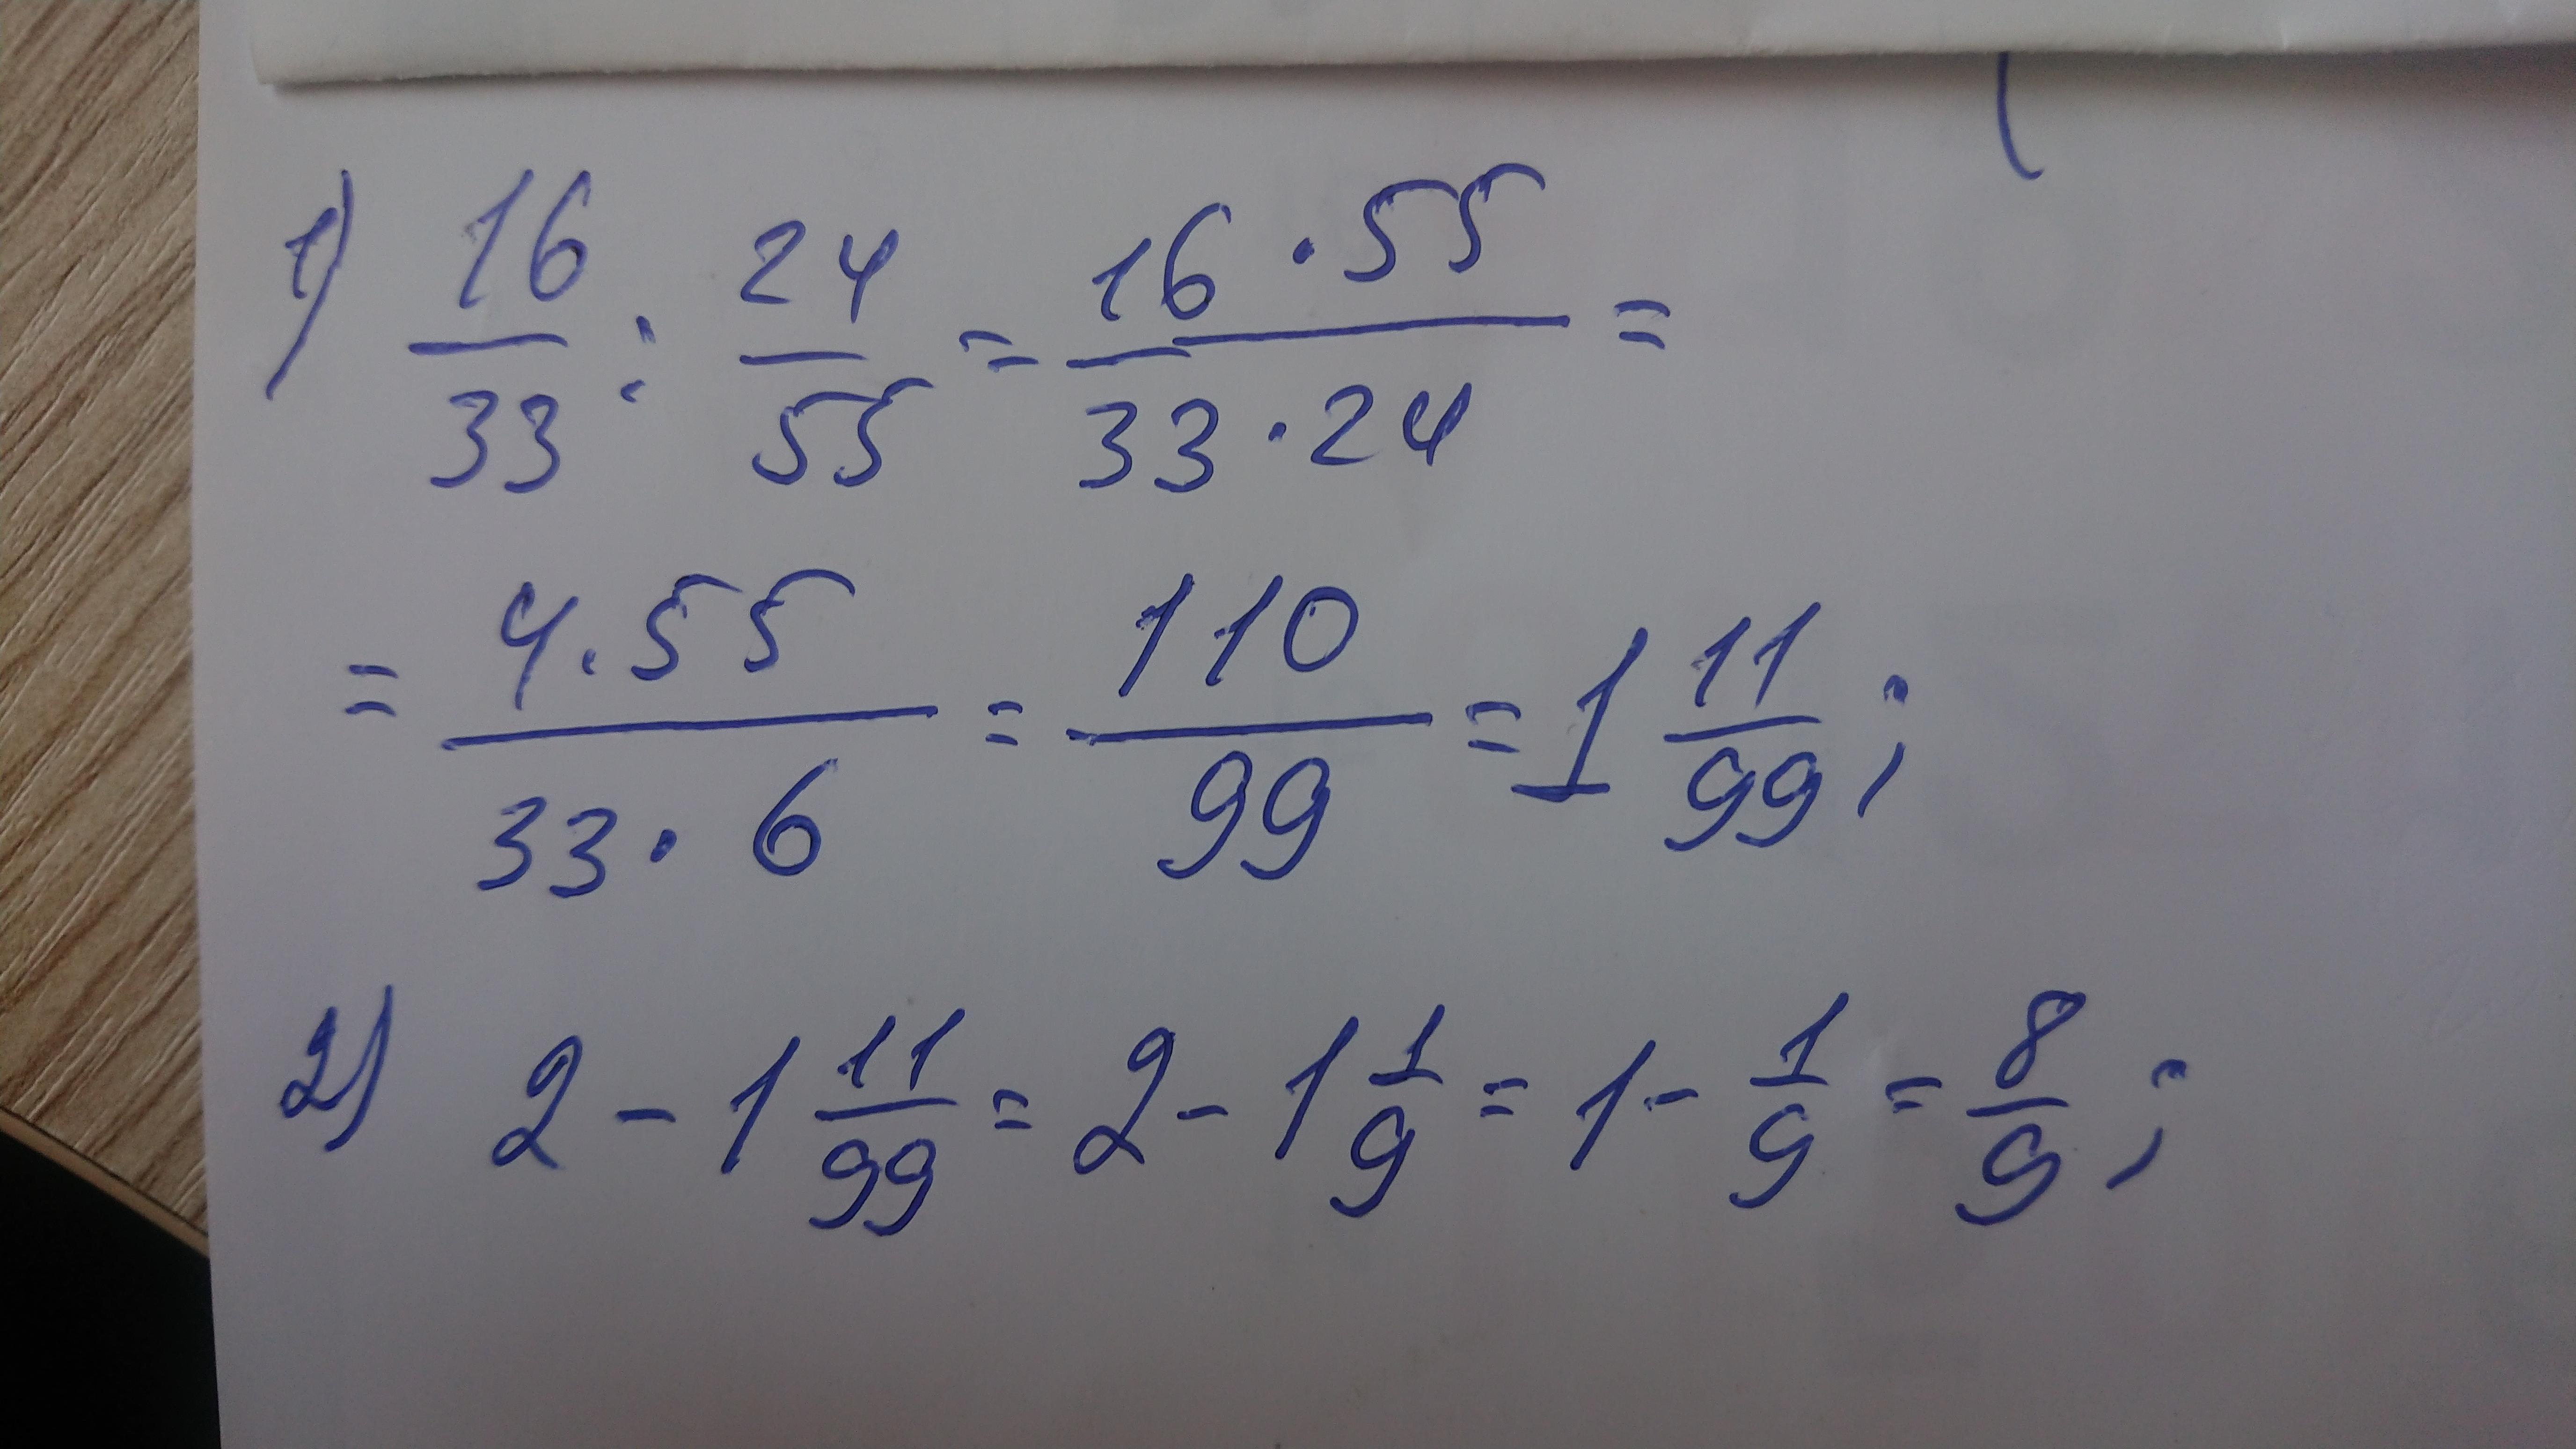 1) 16/33 : 24/55 = 16·55/33·24 =
= 4·55/33·6 = 110/99 = 1 11/99;
2) 2 - 1 11/99 = 2 - 1 1/9 = 1 - 1/9 = 8/9;